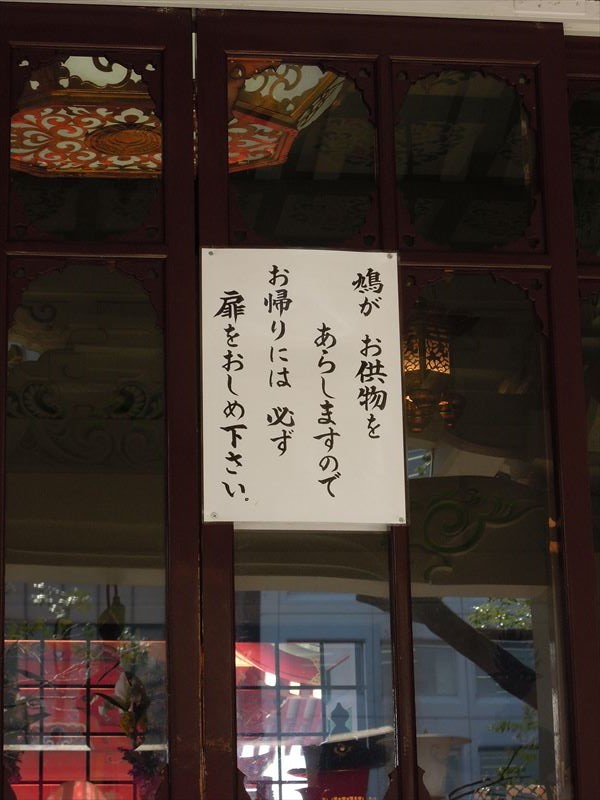 鳩が お供物を
あらしますので
お帰りには 必ず
扉をおしめ下さい。